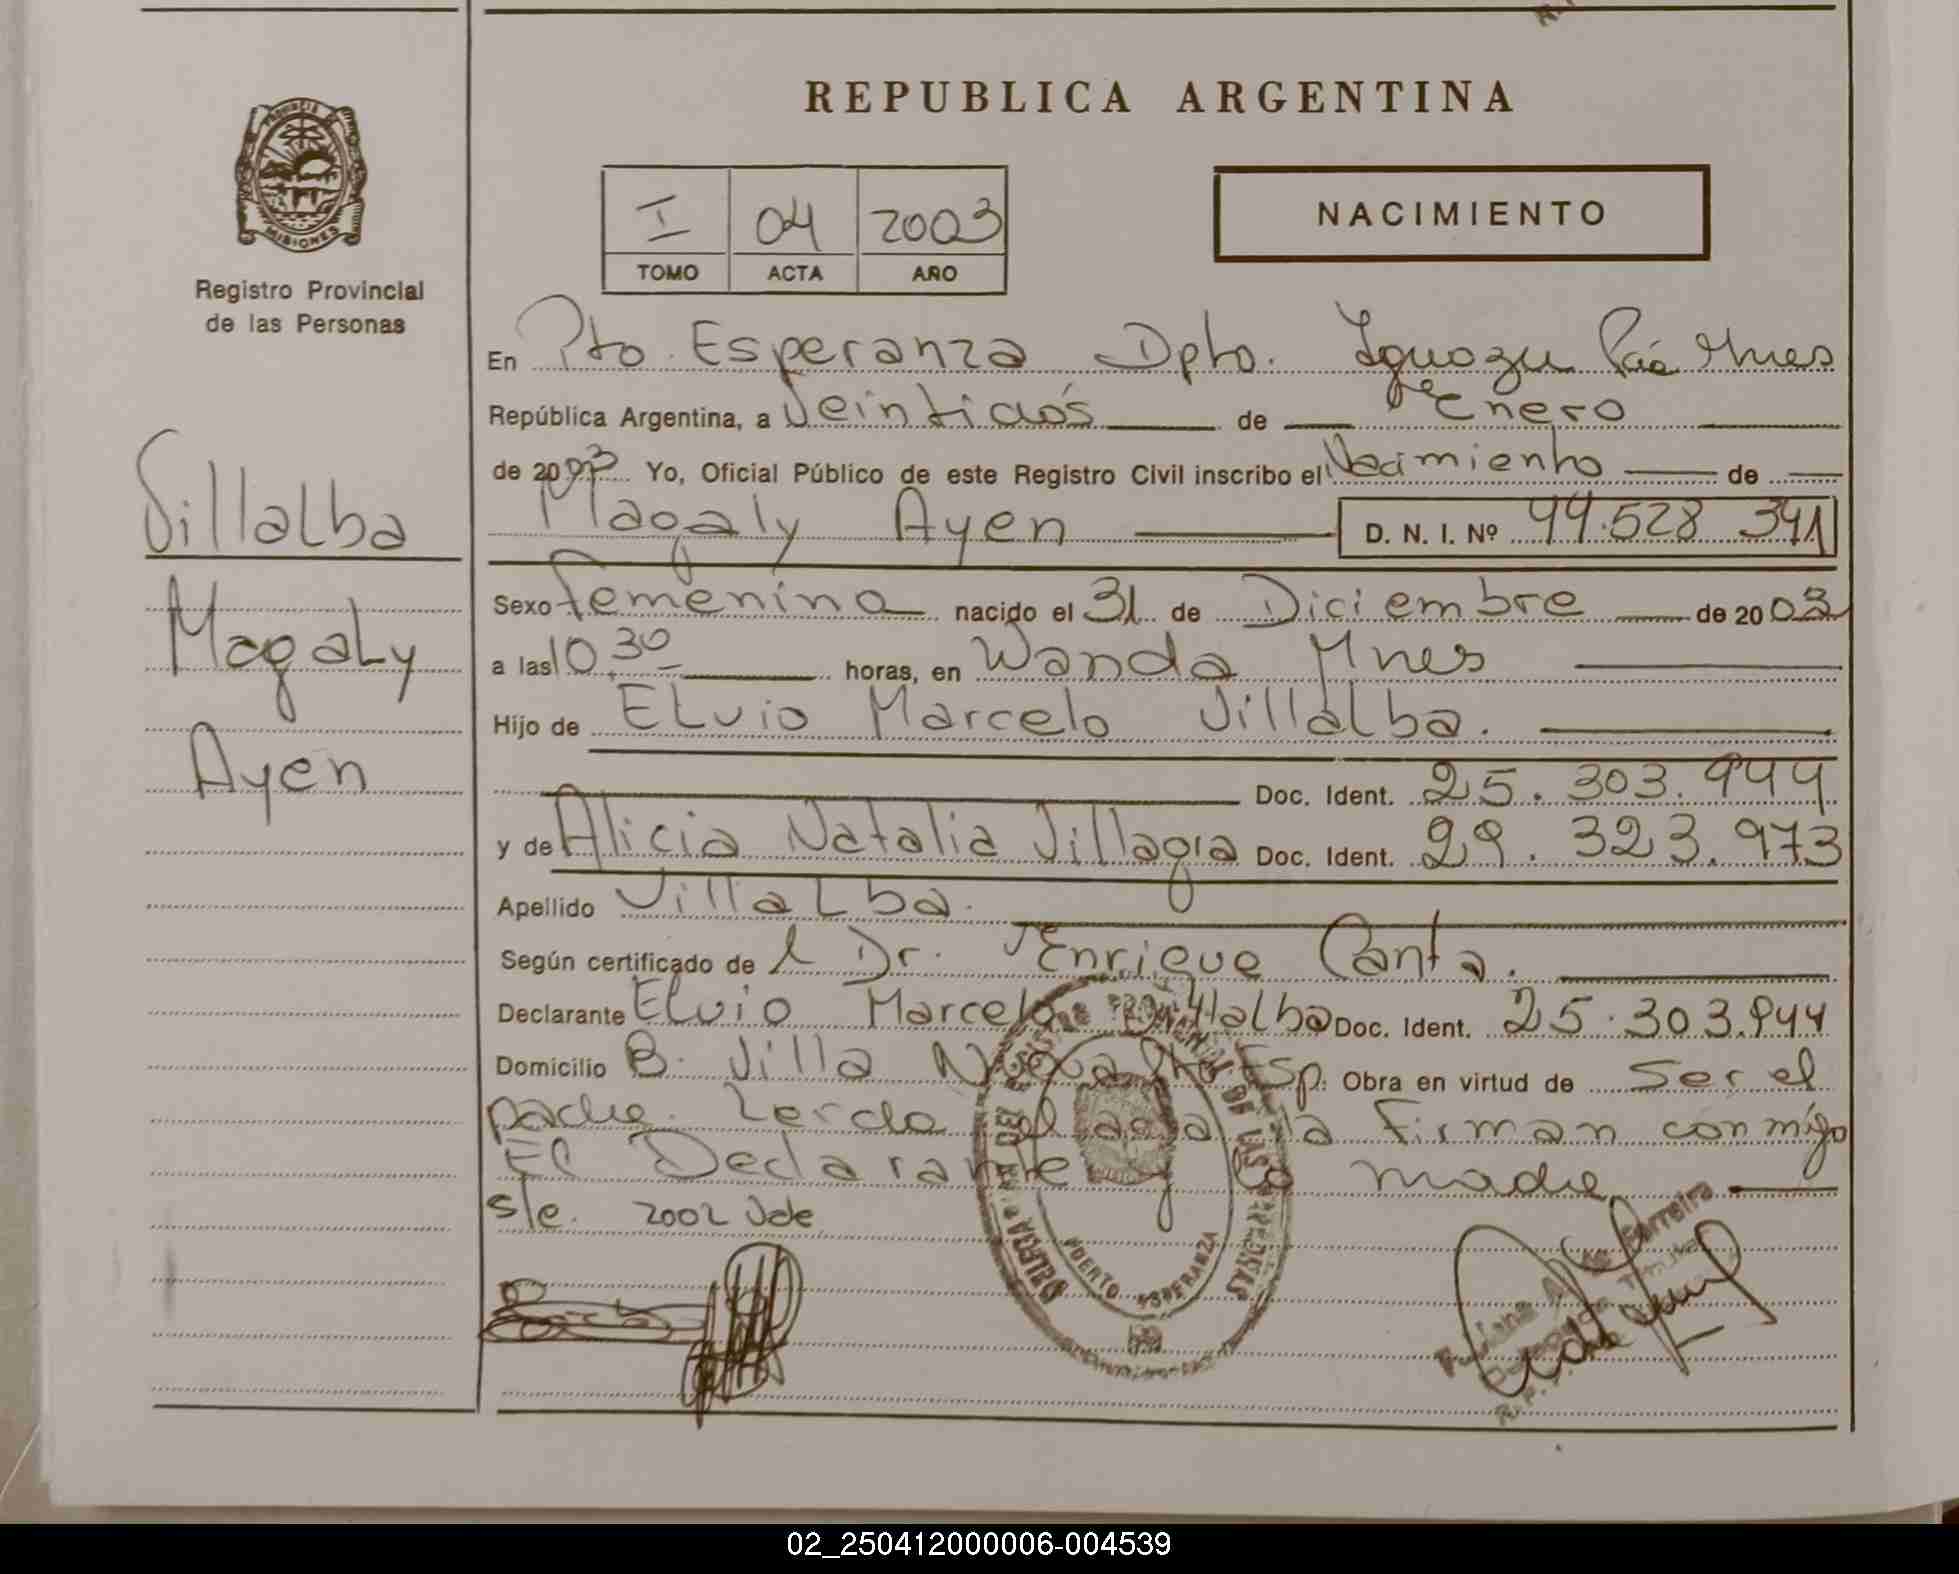 REPUBLICA ARGENTINA
PROVINCIA
MISIONES
Registro Provincial
de las Personas
I 04 2003
TOMO ACTA AÑO
NACIMIENTO
Villalba
Magaly
Ayen
En Pto. Esperanza Dpto. Iguazu Pcia Mnes
República Argentina, a Veintidós de Enero
de 2003 Yo, Oficial Público de este Registro Civil inscribo el Nacimiento de
Magaly Ayen D. N. I. Nº 44.528 341
Sexo femenino nacido el 31 de Diciembre de 20 02
a las 10,30 horas, en Wanda Mnes
Hijo de Elvio Marcelo Villalba.
Doc. Ident. 25.303.944
y de Alicia Natalia Villagra Doc. Ident. 29.323.973
Apellido Villalba.
Según certificado de l Dr. Enrique Canta.
Declarante Elvio Marcelo Villalba Doc. Ident. 25.303.944
Domicilio B. Villa Nueva Pto Esp. Obra en virtud de Ser el
padre. Leida el acta la Firman conmigo
El Declarante y la madre
s/e. 2002 Vale
PUERTO ESPERANZA
02_250412000006-004539